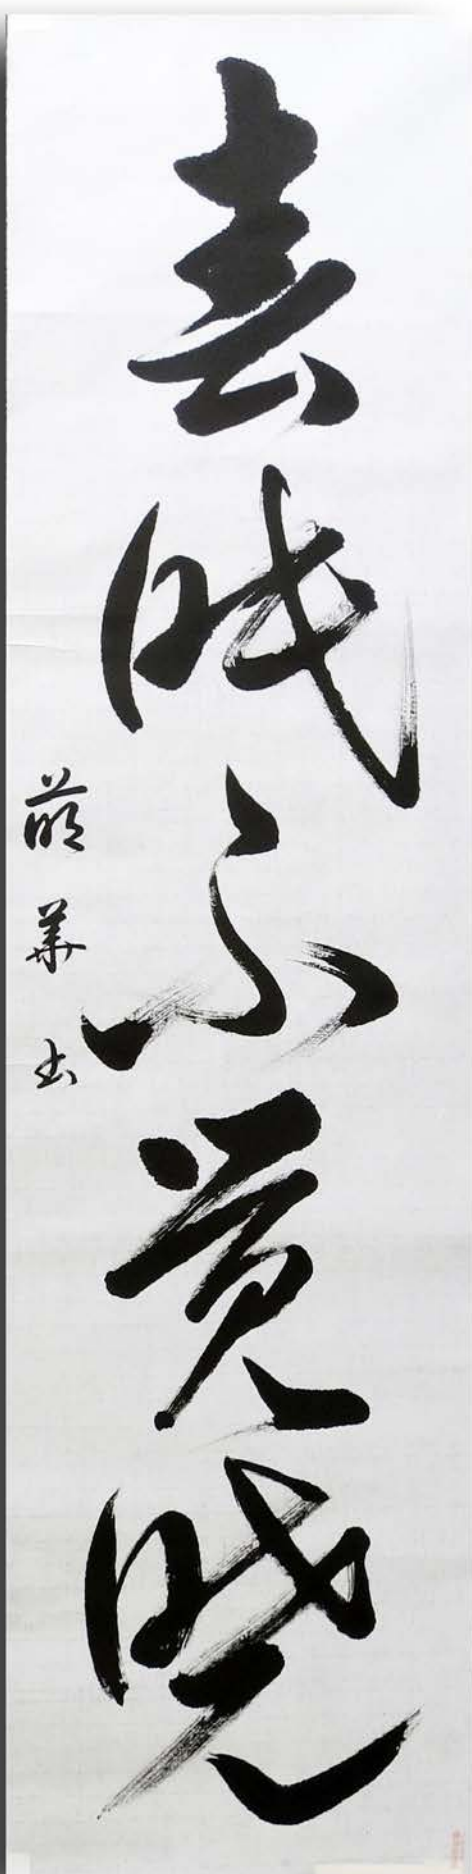 春眠不覚暁
萌華書